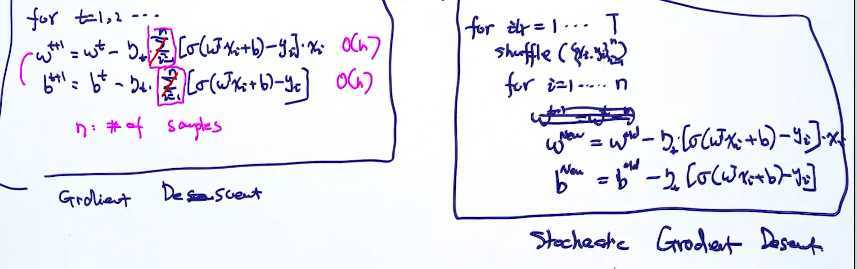 for t=1,2 ---
w^{t+1} = w^t - η_t. Σ_{i=1}^{n} [σ(w^T x_i + b) - y_i]·x_i O(n)
b^{t+1} = b^t - η_t. Σ_{i=1}^{n} [σ(w^T x_i + b) - y_i] O(n)
n: # of samples
Gradient Descent
for itr = 1 ---- T
shuffle ({x_i, y_i}_{i=1}^{n})
for i=1 ---- n
w^{New} = w^{old} - η_t.[σ(w^T x_i + b) - y_i]·x_i
b^{New} = b^{old} - η_t [σ(w^T x_i + b) - y_i]
Stochastic Gradient Descent